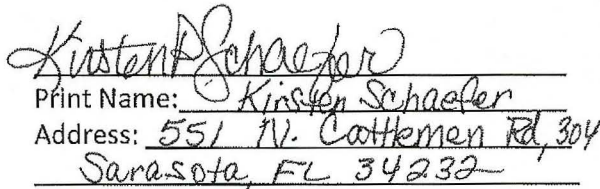 Kirsten A Schaefer
Print Name: Kirsten Schaefer
Address: 551 N. Cattlemen Rd, 304
Sarasota, FL 34232